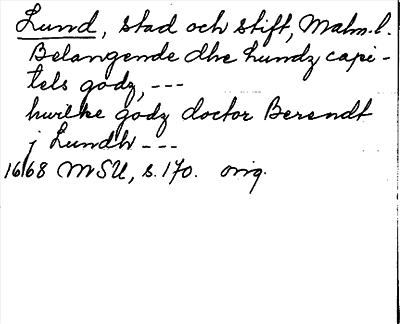 Lund, stad och stift, Malm. l.
Belangende dhe Lundz capi-
tels godz, ---
hwilke godz doctor Berendt
j Lundh ---
1668 MSU, s. 170. orig.